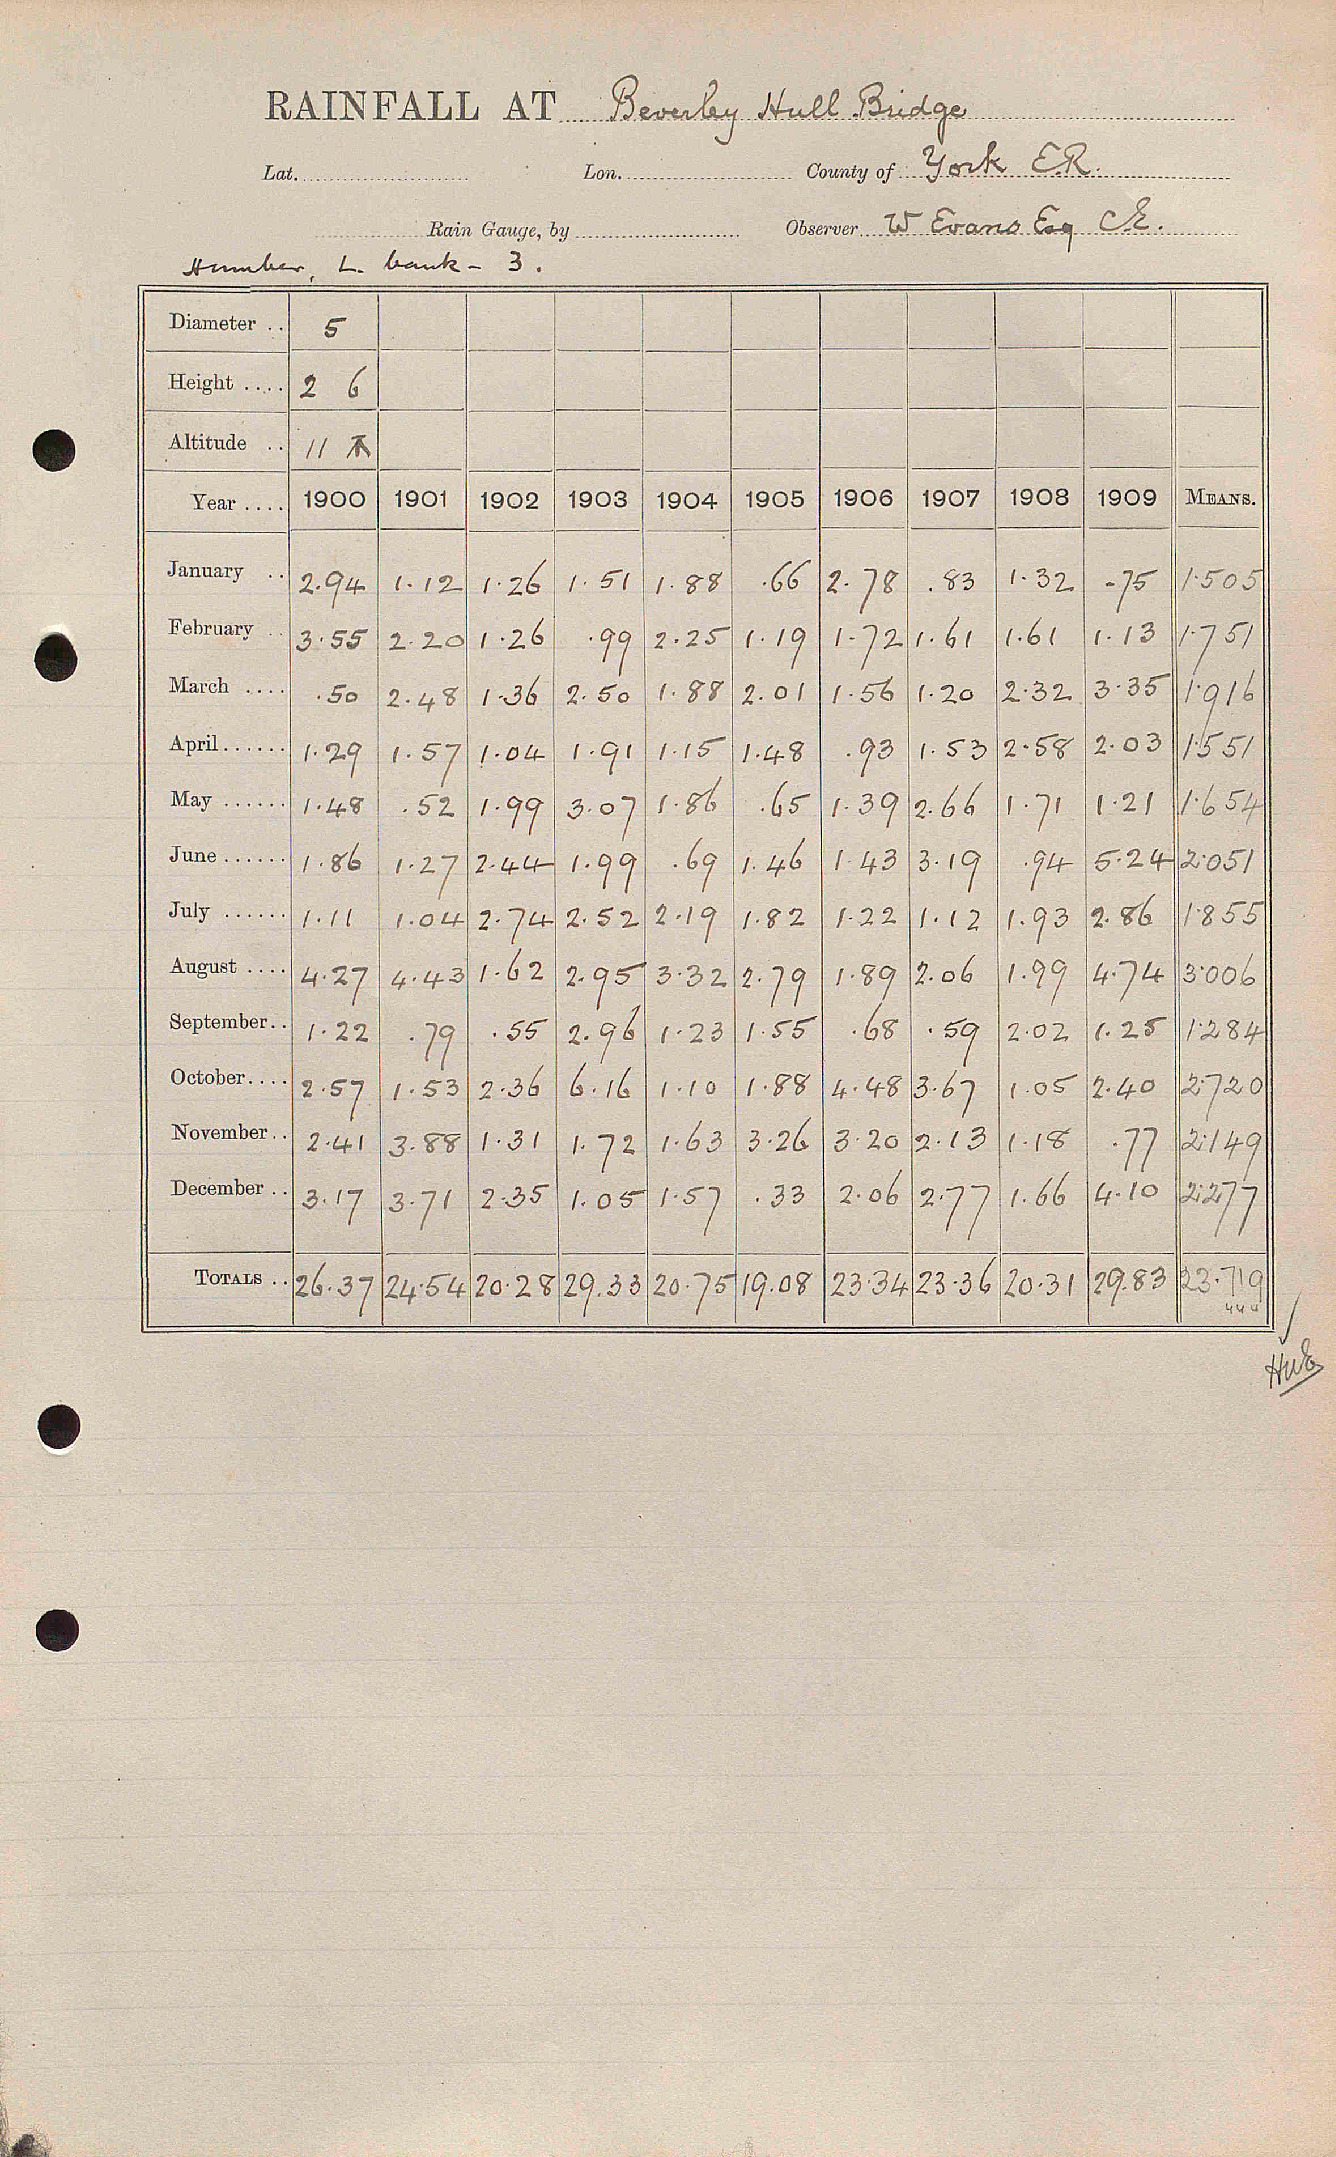 RAINFALL AT Beverley Hull Bridge
Lat. Lon. County of York E.R.
Rain Gauge, by Observer W Evans Esq C.E.
Humber, L. bank - 3.
Diameter .. 5
Height .... 2 6
Altitude .. 11
Year .... 1900 1901 1902 1903 1904 1905 1906 1907 1908 1909 MEANS.
January .. 2.94 1.12 1.26 1.51 1.88 .66 2.78 .83 1.32 .75 1.505
February .. 3.55 2.20 1.26 .99 2.25 1.19 1.72 1.61 1.61 1.13 1.751
March .... .50 2.48 1.36 2.50 1.88 2.01 1.56 1.20 2.32 3.35 1.916
April ...... 1.29 1.57 1.04 1.91 1.15 1.48 .93 1.53 2.58 2.03 1.551
May ...... 1.48 .52 1.99 3.07 1.86 .65 1.39 2.66 1.71 1.21 1.654
June ...... 1.86 1.27 2.44 1.99 .69 1.46 1.43 3.19 .94 5.24 2.051
July ...... 1.11 1.04 2.74 2.52 2.19 1.82 1.22 1.12 1.93 2.86 1.855
August .... 4.27 4.43 1.62 2.95 3.32 2.79 1.89 2.06 1.99 4.74 3.006
September .. 1.22 .79 .55 2.96 1.23 1.55 .68 .59 2.02 1.25 1.284
October .... 2.57 1.53 2.36 6.16 1.10 1.88 4.48 3.67 1.05 2.40 2.720
November .. 2.41 3.88 1.31 1.72 1.63 3.26 3.20 2.13 1.18 .77 2.149
December .. 3.17 3.71 2.35 1.05 1.57 .33 2.06 2.77 1.66 4.10 2.277
TOTALS .. 26.37 24.54 20.28 29.33 20.75 19.08 23.34 23.36 20.31 29.83 23.719